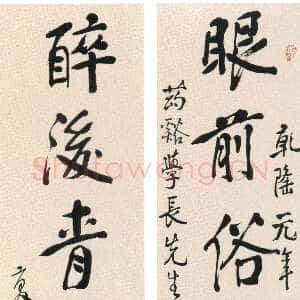 乾隆元年
眼前俗
谿學長先生
醉後青
Shufawang.CN